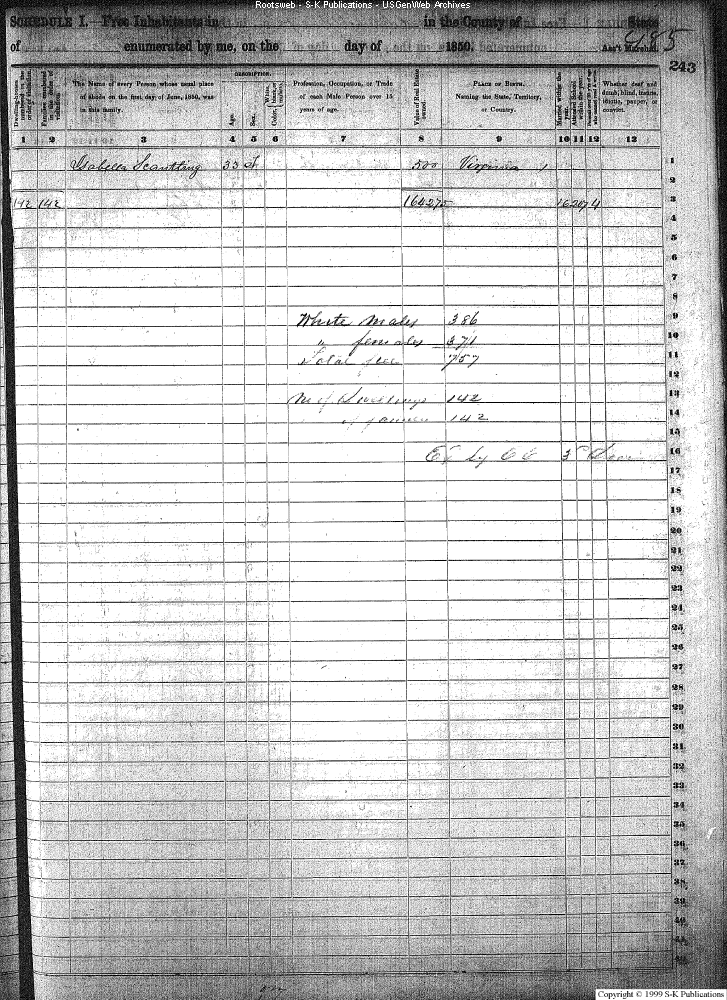 Rootsweb - S-K Publications - USGenWeb Archives
SCHEDULE I.—Free Inhabitants in in the County of State
of enumerated by me, on the day of 1850. Ass't Marshal.
485
243
DESCRIPTION.
Dwelling-houses numbered in the order of visitation.
Families numbered in the order of visitation.
The Name of every Person whose usual place of abode on the first day of June, 1850, was in this family.
Age.
Sex.
Color, White, black, or mulatto.
Profession, Occupation, or Trade of each Male Person over 15 years of age.
Value of Real Estate owned.
PLACE OF BIRTH. Naming the State, Territory, or Country.
Married within the year.
Attended School within the year.
Whether deaf and dumb, blind, insane, idiotic, pauper, or convict.
1 2 3 4 5 6 7 8 9 10 11 12 13
Isabella Scantling 33 F. 500 Virginia 1 1
2
142 142 164275 16 207 4 3
4
5
6
7
8
White males 386 9
" females 371 10
Total free 757 11
12
No of Dwellings 142 13
of families 142 14
15
16
17
18
19
20
21
22
23
24
25
26
27
28
29
30
31
32
33
34
35
36
37
38
39
40
41
42
Copyright © 1999 S-K Publications